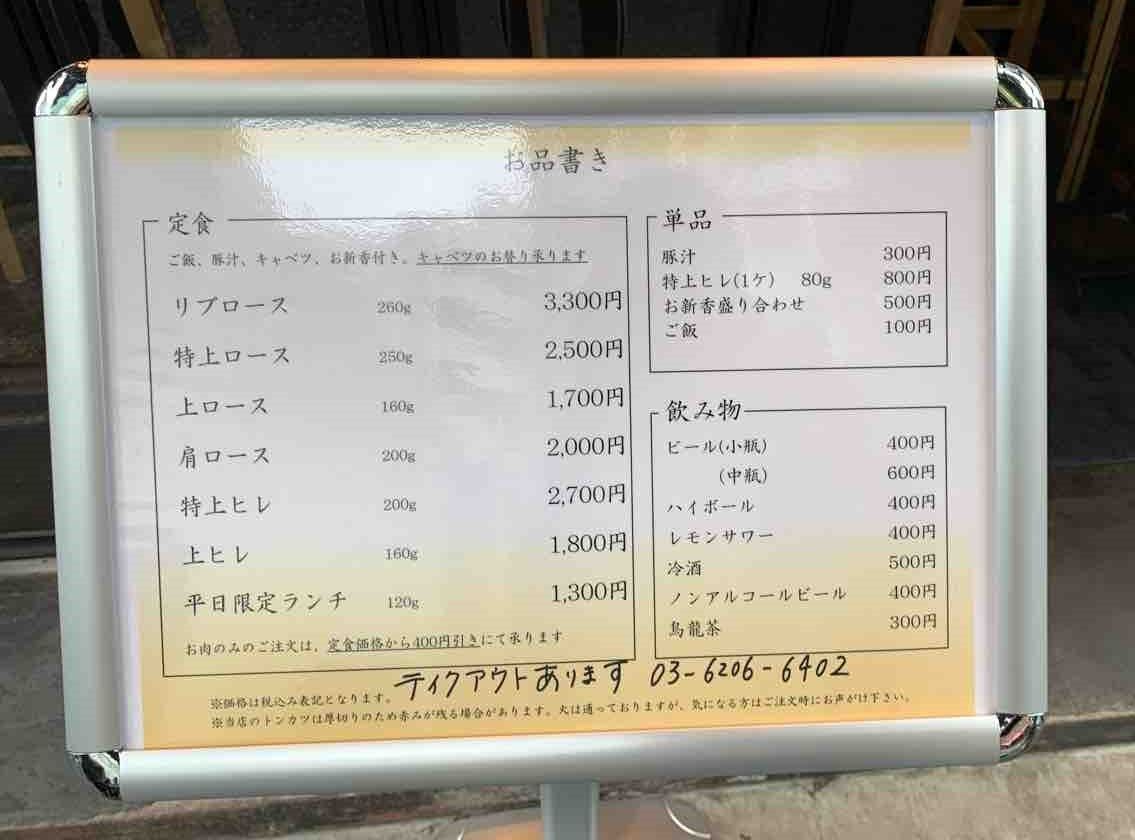 お品書き
定食
ご飯、豚汁、キャベツ、お新香付き。キャベツのお替り承ります
リブロース 260g 3,300円
特上ロース 250g 2,500円
上ロース 160g 1,700円
肩ロース 200g 2,000円
特上ヒレ 200g 2,700円
上ヒレ 160g 1,800円
平日限定ランチ 120g 1,300円
お肉のみのご注文は、定食価格から400円引きにて承ります
単品
豚汁 300円
特上ヒレ(1ケ) 80g 800円
お新香盛り合わせ 500円
ご飯 100円
飲み物
ビール(小瓶) 400円
(中瓶) 600円
ハイボール 400円
レモンサワー 400円
冷酒 500円
ノンアルコールビール 400円
烏龍茶 300円
テイクアウトあります 03-6206-6402
※価格は税込み表記となります。
※当店のトンカツは厚切りのため赤みが残る場合があります。火は通っておりますが、気になる方はご注文時にお声がけ下さい。